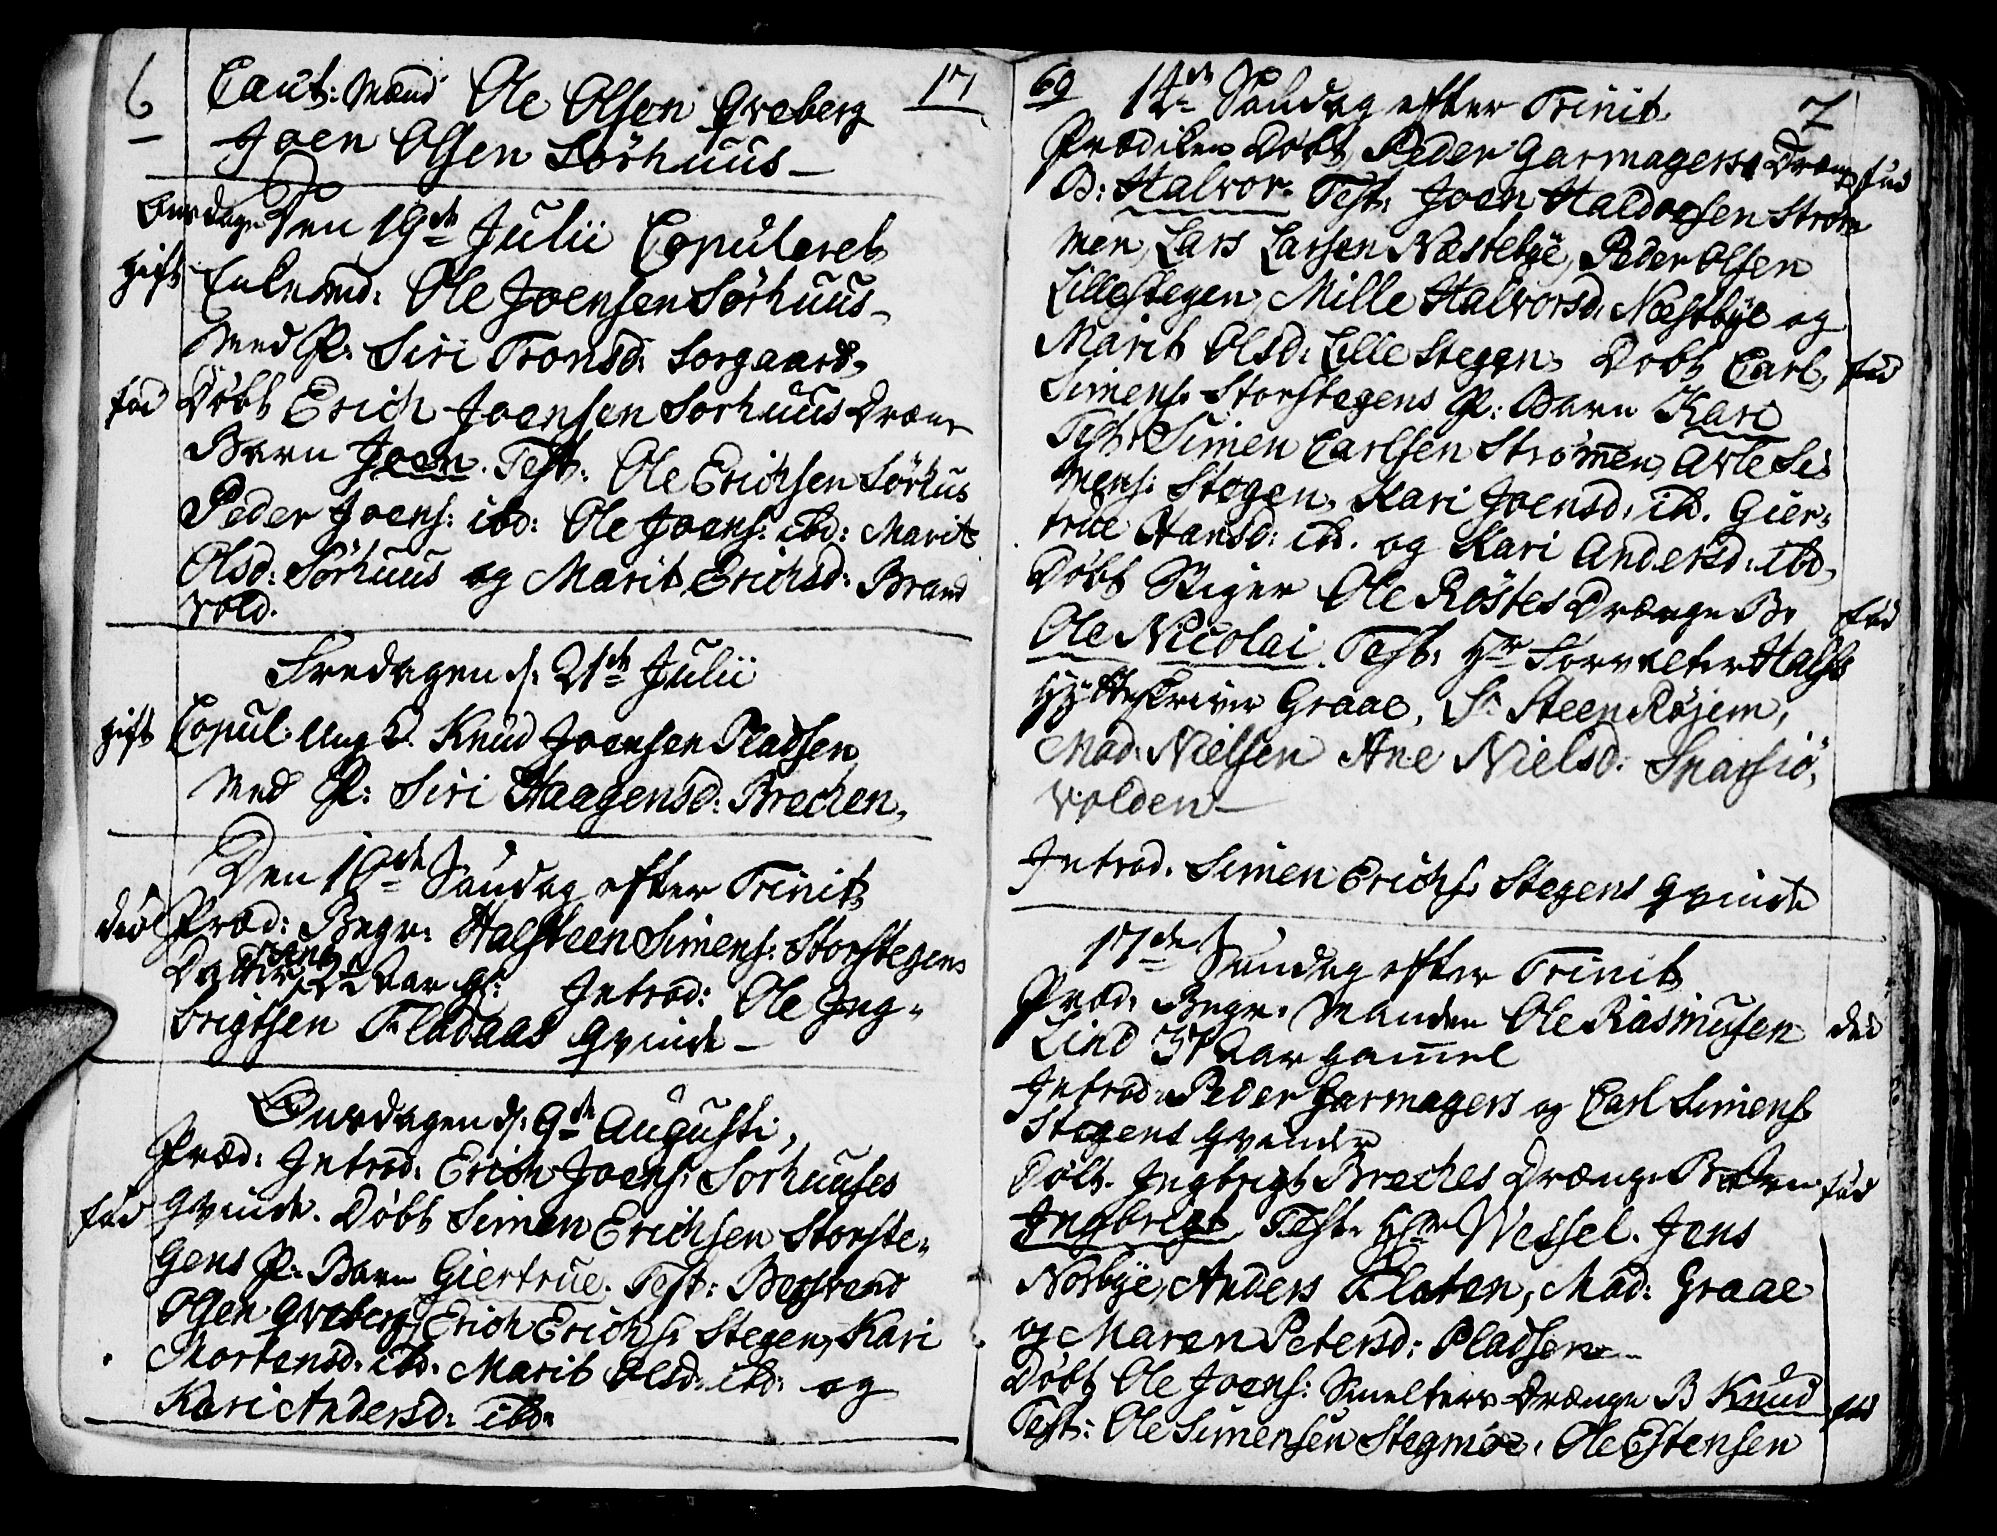 6
17
Caut: Mænd Ole Olsen Qveberg
Joen Olsen Sörhuus –
Onsdagen Den 19de Julii Copuleret
gift Enkemd: Ole Joensen Sörhuus
med P: Siri Tronsd: Sorgaard,
fød Döbt Erich Joensen Sorhuus Drænge
Barn Joen. Test: Ole Erichsen Sörhus
Peder Joens: ibd: Ole Joens: ibd: Marit
Olsd: Sörhuus og Marit Erichsd: Brand
vold.
Fredagen d. 21de Julii
gift Copul. Ung K. Knud Joensen Pladsen
med P: Siri Haagensd: Brechen,
Den 10de Søndag efter Trinit
død Præd: Begr: Halsteen Simens: Storstegens
Datter 2 Aar gl: Introd: Ole Ing-
brigtsen Fladaas Qvinde –
Onsdagen d. 9de Augusti,
Præd: Introd: Erich Joens: Sorhuuses
fød Qvinde. Döbt Simen Erichsen Storste-
gens P. Barn Giertrue. Test: Bersvend
Olsen Qveberg, Erich Erichs: Stegen, Kari
Mortensd: ibd: Marit Olsd: ibd: og
Kari Andersd: ibd:
69
7
14de Søndag efter Trinit
Prædiken Döbt Peder Garmagers Drænge fød
B: Halvor. Test: Joen Haldorsen Ström
men, Lars Larsen Næstebye, Peder Olsen
Lillestegen, Mille Halvorsd: Næstbye og
Marit Olsd: Lille Stegen, Döbt Carl fød
Simens: Storstegens P: Barn Kari
Test: Simen Carlsen Strömmen, Arle Si-
mens: Stegen, Kari Joensd: ib. Gier-
true Hansd: ib. og Kari Andersd: ibd,
Döbt Stiger Ole Röstes Drænge B: fød
Ole Nicolai. Test: Hr Forvalter Hals
Hytteskriver Graae, Sr Steen Röjem,
Mad: Nielsen Ane Nielsd: Snarsiö,
volden –
Introd. Simen Erichs: Stegens Qvinde
17de Søndag efter Trinit
Præd: Begr: Manden Ole Rasmusen død
Lind 37 Aar gammel
Introd: Peder Garmagers og Carl Simens
Stegens Qvinder
Döbt. Ingbrigt Breches Drænge Barn fød
Ingbrigt Test: Hr Wessel. Jens
Norbye, Anders Floten, Mad: Graae
og Maren Petersd: Pladsen –
Döbt Ole Joens: Smelters Drænge B Knud fød
Test: Ole Simensen Stegmoe, Ole Estensen